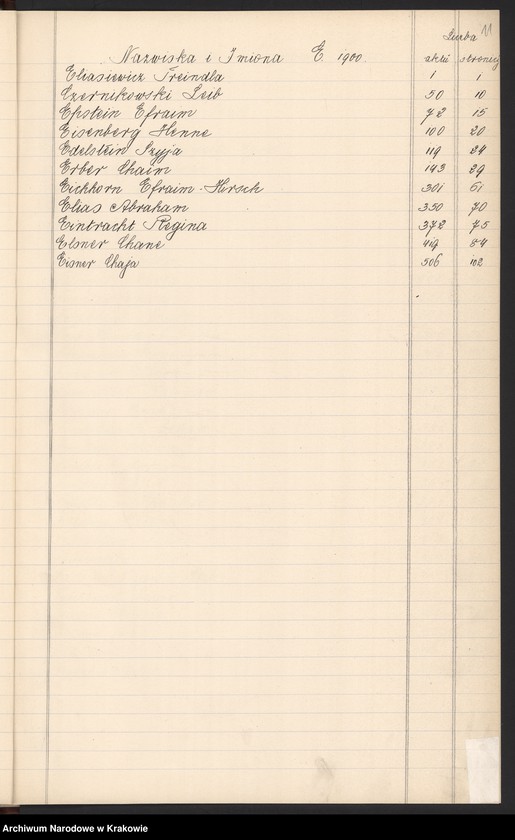 Liczba 11
Nazwiska i Imiona E. 1900. aktu stronicy
Eliasiewicz Freindla 1 1
Ezernikowski Leib 50 10
Epstein Efraim 72 15
Eisenberg Henne 100 20
Edelstein Szyja 119 24
Erber Chaim 143 29
Eichhorn Efraim-Hirsch 301 61
Elias Abraham 350 70
Eintracht Regina 372 75
Elsner Chane 419 84
Eisner Chaja 506 102
Archiwum Narodowe w Krakowie